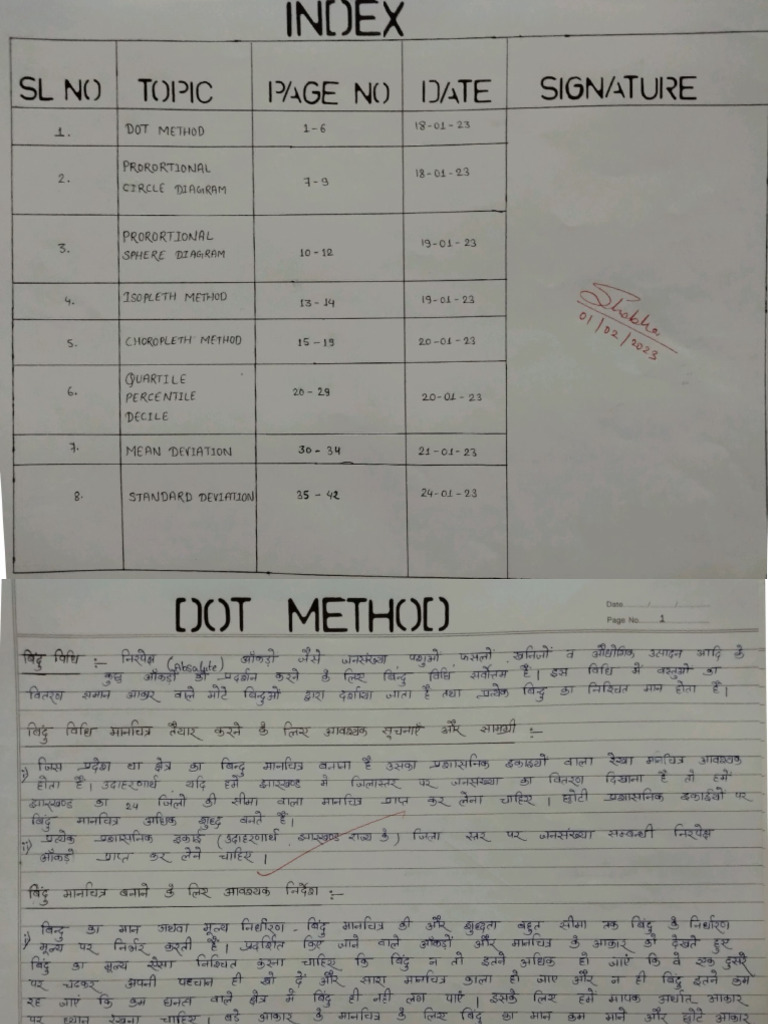 INDEX
SL NO TOPIC PAGE NO DATE SIGNATURE
1. DOT METHOD 1-6 18-01-23
2. PRORORTIONAL CIRCLE DIAGRAM 7-9 18-01-23
3. PRORORTIONAL SPHERE DIAGRAM 10-12 19-01-23
4. ISOPLETH METHOD 13-14 19-01-23
5. CHOROPLETH METHOD 15-19 20-01-23
6. QUARTILE PERCENTILE DECILE 20-29 20-01-23
7. MEAN DEVIATION 30-34 21-01-23
8. STANDARD DEVIATION 35-42 24-01-23
Shobha
01/02/2023
DOT METHOD
Date
Page No. 1
बिंदु विधि :- निरपेक्ष (Absolute) आँकड़ो जैसे जनसंख्या पशुओं फसलों खनिजों व औद्योगिक उत्पादन आदि के
कुछ आँकड़ों को प्रदर्शन करने के लिए बिन्दु विधि सर्वोत्तम है। इस विधि में वस्तुओं का
वितरण समान आकार वाले मोटे बिन्दुओं द्वारा दर्शाया जाता है तथा प्रत्येक बिन्दु का निश्चित मान होता है।
बिंदु विधि मानचित्र तैयार करने के लिए आवश्यक सूचनाएँ और सामग्री :-
i) जिस प्रदेश या क्षेत्र का बिन्दु मानचित्र बनाना है उसका प्रशासनिक इकाइयों वाला रेखा मानचित्र आवश्यक
होता है। उदाहरणार्थ यदि हमें झारखण्ड में जिलास्तर पर जनसंख्या का वितरण दिखाना है तो हमें
झारखण्ड का 24 जिलों की सीमा वाला मानचित्र प्राप्त कर लेना चाहिए। छोटी प्रशासनिक इकाईयों पर
बिंदु मानचित्र अधिक शुद्ध बनते है।
ii) प्रत्येक प्रशासनिक इकाई (उदाहरणार्थ झारखण्ड राज्य के) जिला स्तर पर जनसंख्या सम्बन्धी निरपेक्ष
आँकड़ो प्राप्त कर लेने चाहिए।
बिंदु मानचित्र बनाने के लिए आवश्यक निर्देश :-
i) बिन्दु का मान अथवा मूल्य निर्धारण - बिंदु मानचित्र की और शुद्धता बहुत सीमा तक बिंदु के निर्धारण
मूल्य पर निर्भर करती है। प्रदर्शित किए जाने वाले आँकड़ों और मानचित्र के आकार को देखते हुए
बिंदु का मूल्य ऐसा निश्चित करना चाहिए कि बिंदु न तो इतने अधिक हो जाएं कि वे एक दुसरे
पर चढकर अपनी पहचान ही खो दें और सारा मानचित्र काला हो जाए और न ही बिंदु इतने कम
रह जाएं कि कम घनता वाले क्षेत्र में बिंदु ही नही लग पाएं। इसके लिए हमें मापक अर्थात आकार
पर ध्यान रखना चाहिए। बड़े आकार के मानचित्र के लिए बिंदु का मान कम माने और छोटे आकार